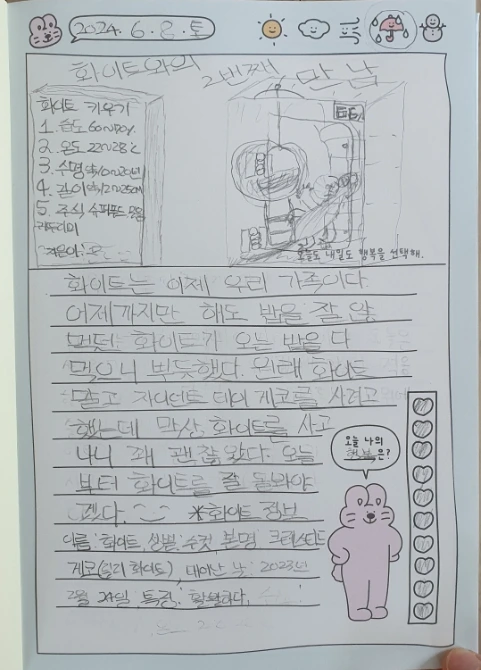 2024. 6. 8. 토
화이트와의 2번째 만남
화이트 키우기
1. 습도 60~70%.
2. 온도 22~28°C
3. 수명 약10~20년
4. 길이 약12~25cm
5. 주식 슈퍼푸드
귀뚜라미
오늘도 내일도 행복을 선택해.
화이트는 이제 우리 가족이다.
어제까지만 해도 밥을 잘 않
먹던 화이트가 오는 밥을 다
먹으니 뿌듯했다. 원래 화이트
말고 자이언트 데이 게코를 사려고
했는데 막상 화이트를 사고
나니 꽤 괜찮았다. 오늘
부터 화이트를 잘 돌봐야
겠다. ※화이트 정보
이름: 화이트, 성별: 수컷, 본명: 크레스티드
게코(릴리 화이트), 태어난 날: 2023년
2월 24일, 특징: 활발하다.
오늘 나의
행복은?